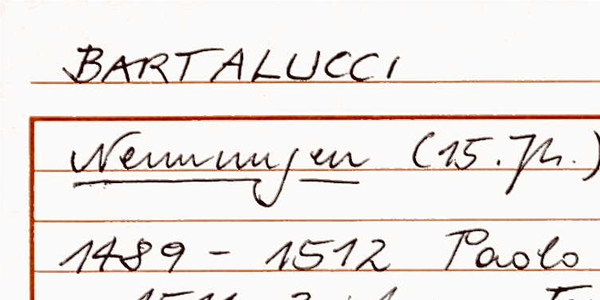 BARTALUCCI
Nennungen (15. Jh.)
1489 - 1512 Paolo